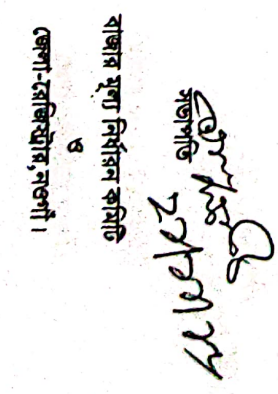 সভাপতি
বাজার মূল্য নির্ধারন কমিটি
ও
জেলা-রেজিস্ট্রার, নওগাঁ।